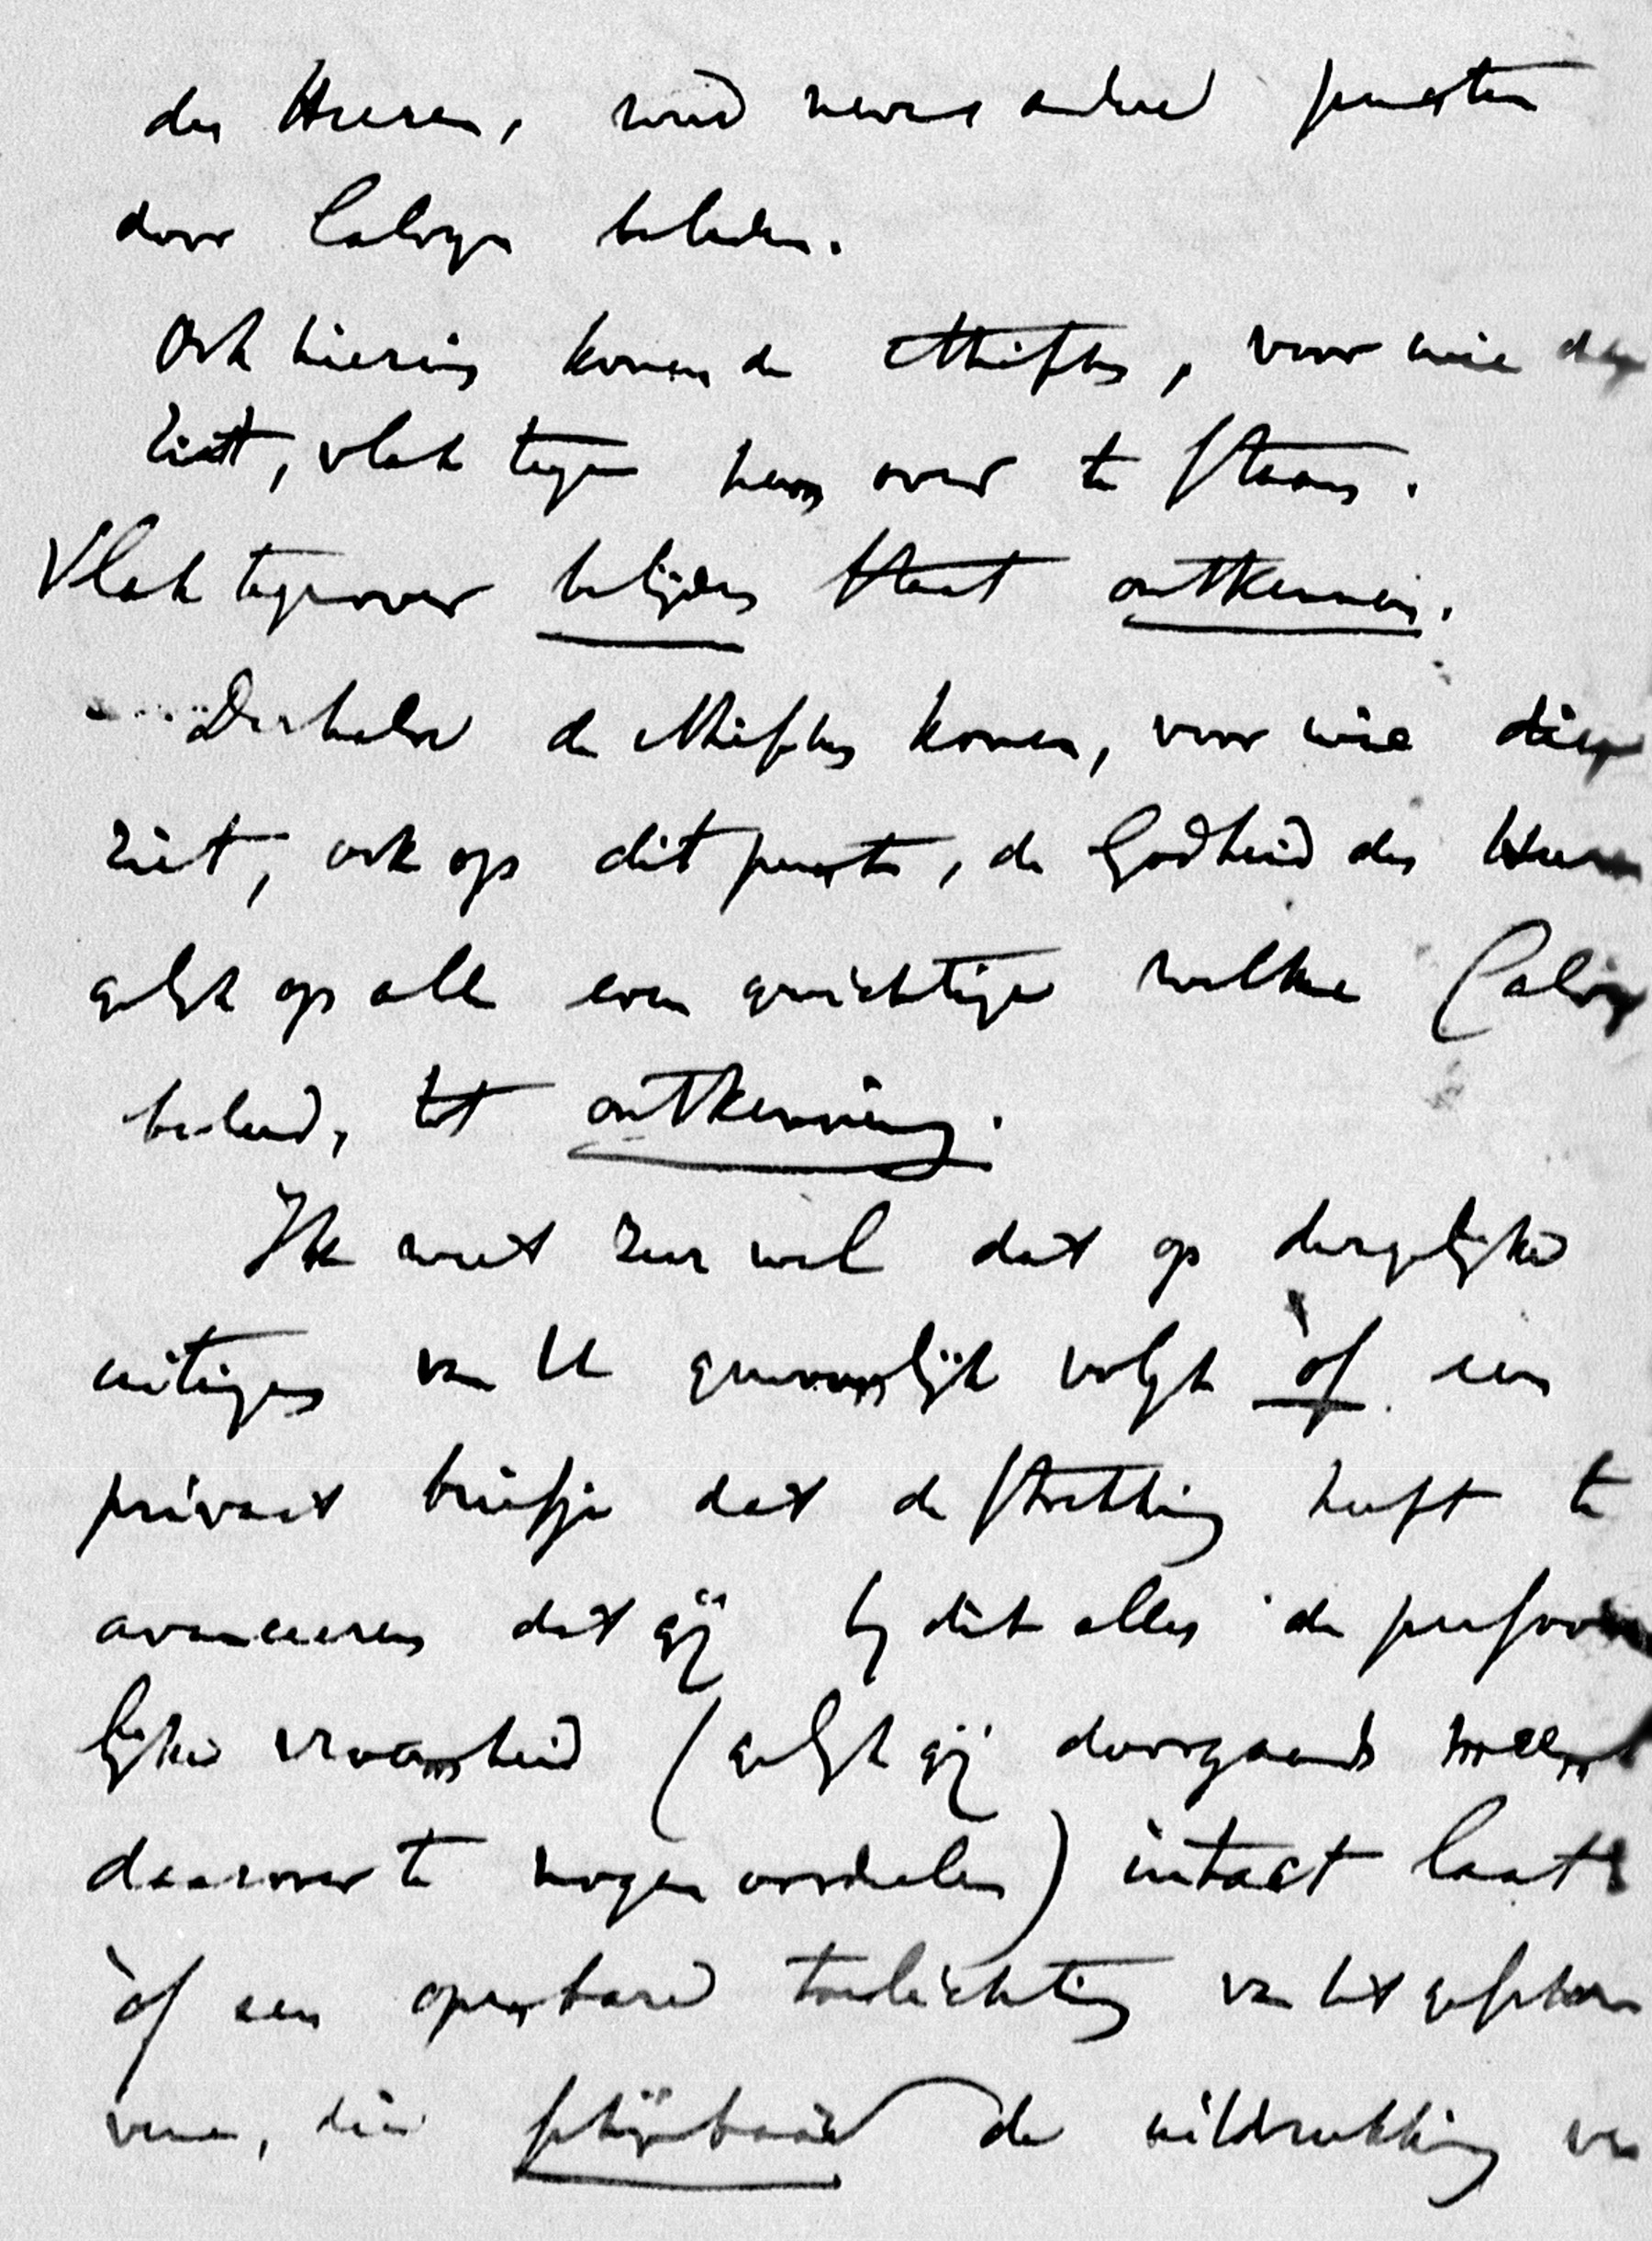 des Heeren, werd nevens andere punten
door Calvijn beleden.
Ook hierin komen de ethischen, voor wie diep
ziet, vlak tegen hem over te staan.
Vlak tegenover belijden staat ontkennen.
Derhalve de ethischen komen, voor wie diep
ziet, ook op dit punt, de Godheid des Heeren
gelijk op alle even gewichtige welke Calvijn
beleed, tot ontkenning.
Ik weet zeer wel dat op dergelijke
uitingen van U gewoonlijk volgt òf een
privaat briefje dat de strekking heeft te
avanceeren dat gij bij dit alles de persoon
lijke vroomheid (gelijk gij doorgaands meent
daarover te mogen oordeelen) intact laat
òf een openbare toelichting van het geschre
vene, die schijnbaar de uitdrukking ver